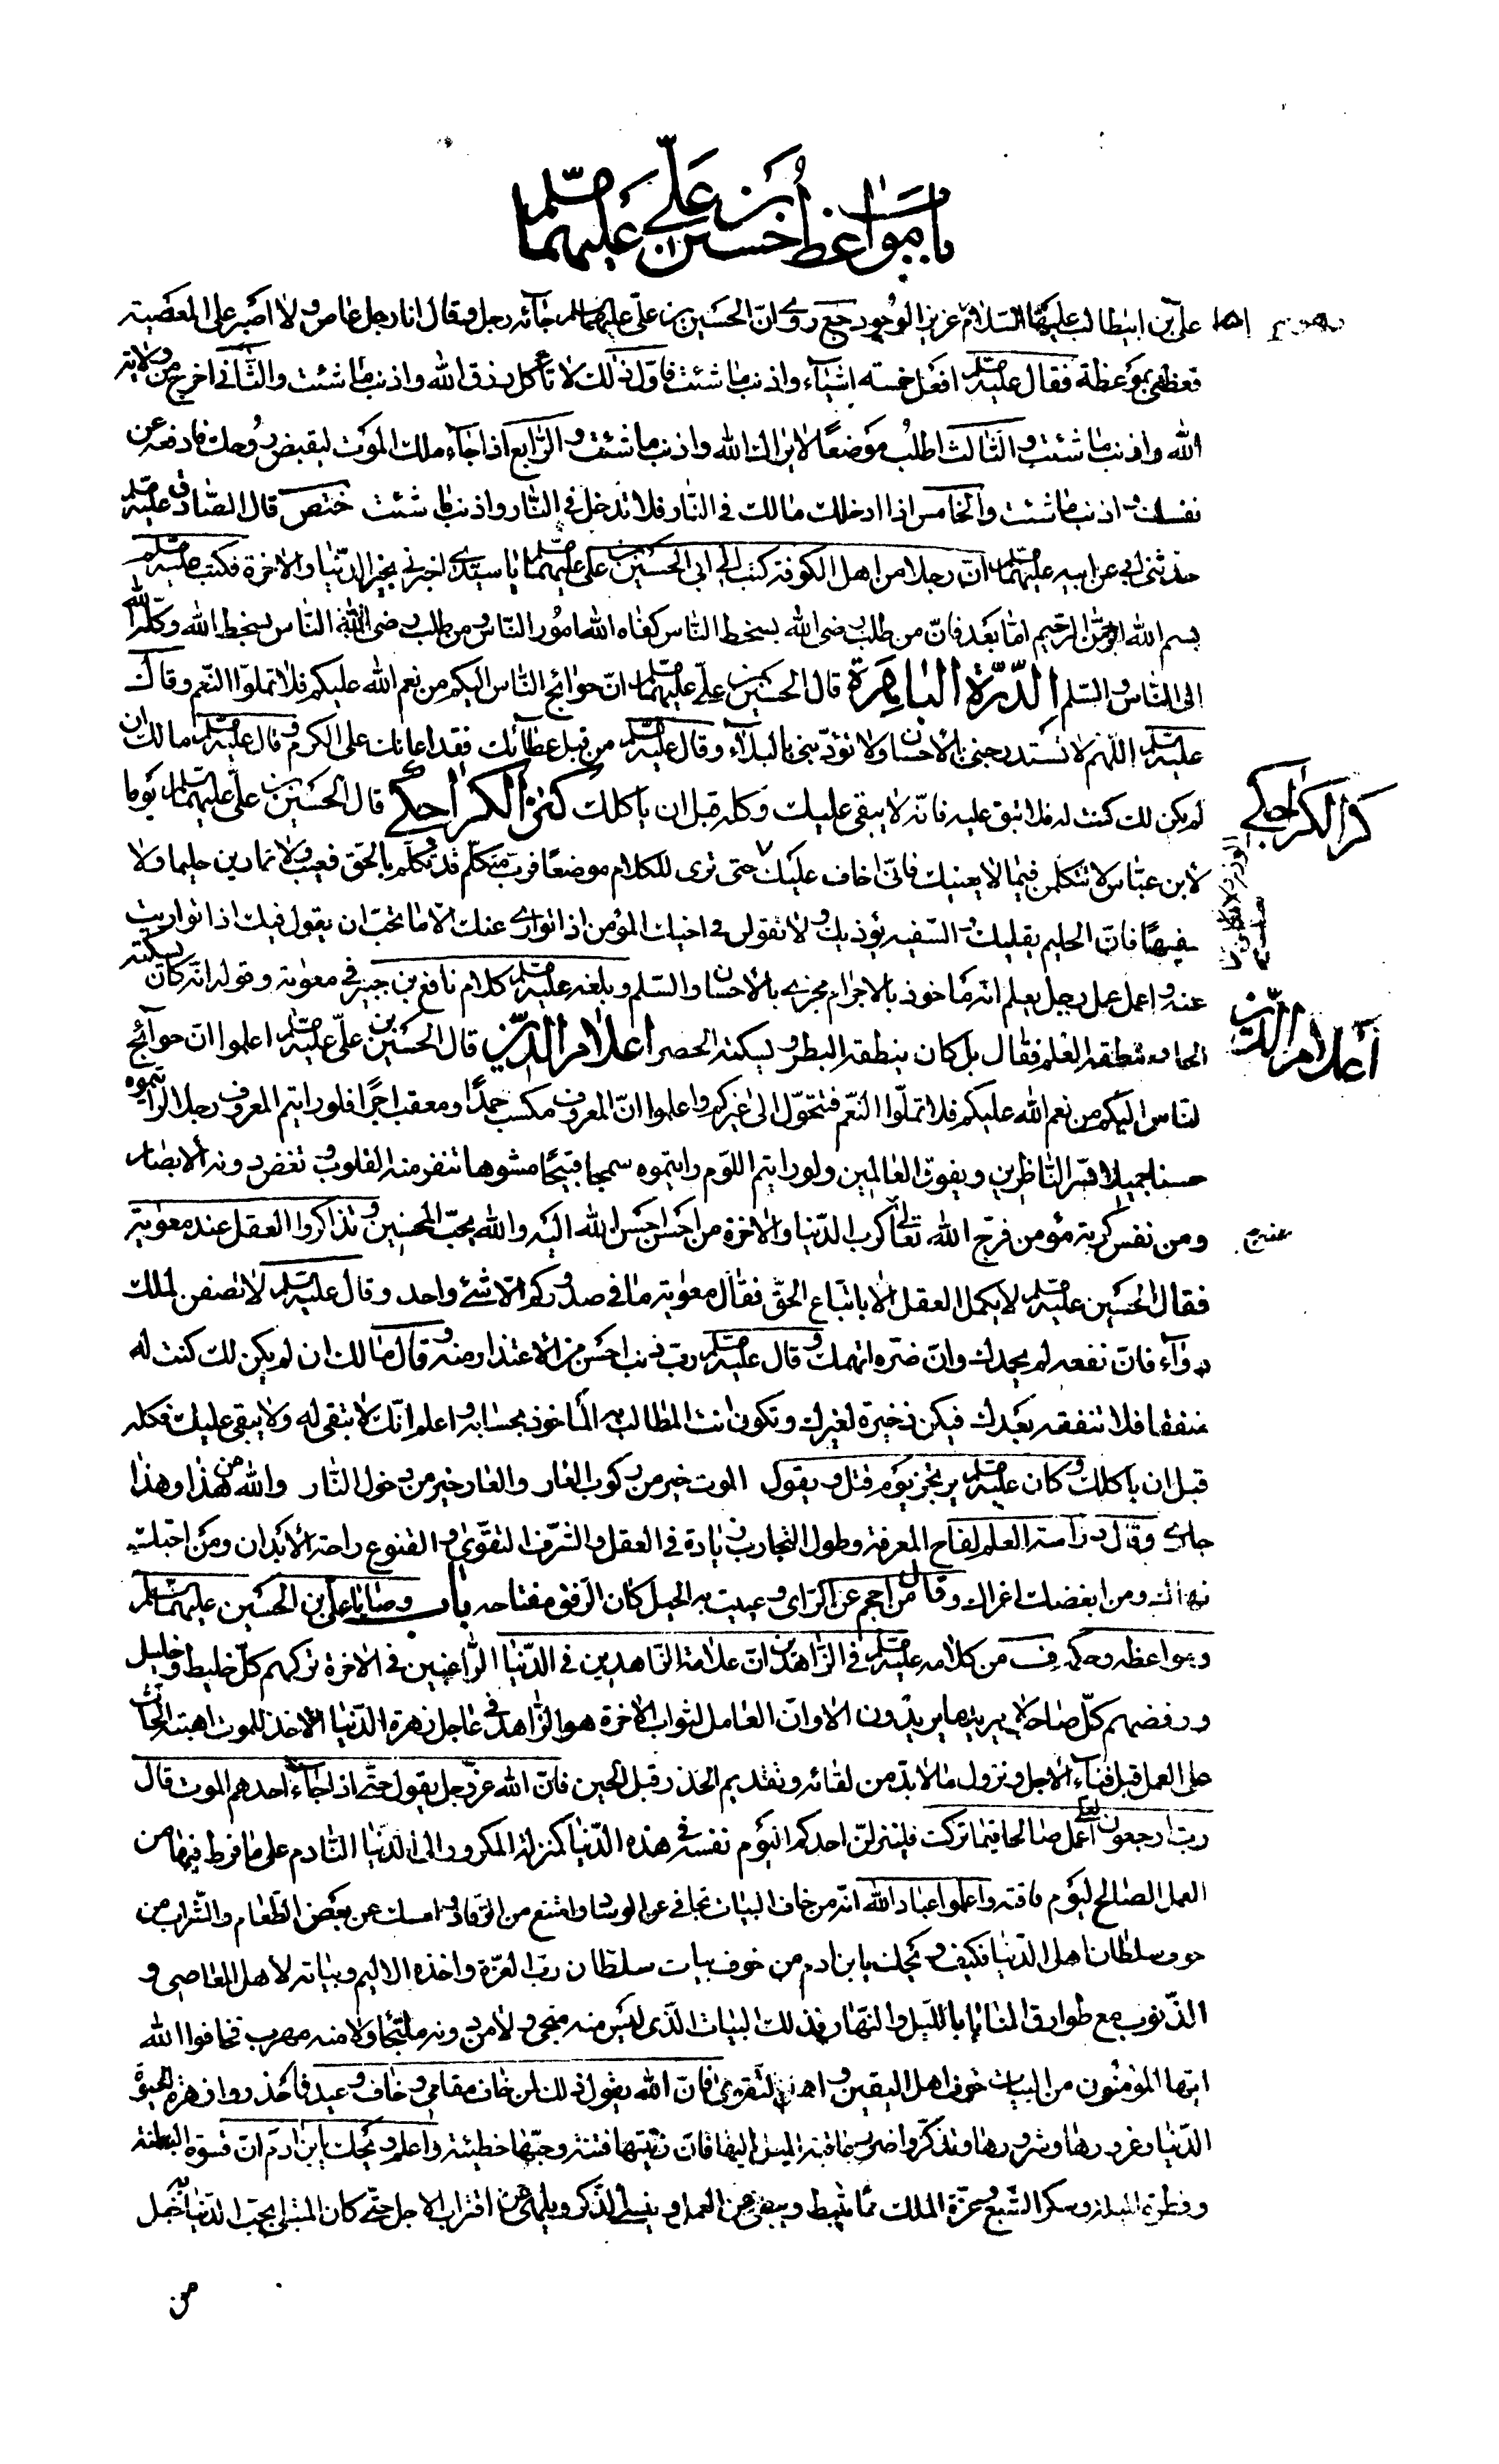 باب مواعظ الحسين بن علي عليهما صلم
علي بن ابيطالب عليهما السلام عزيز الوجود جع روي ان الحسين بن علي عليهما صلم جائه رجل وقال انا رجل عاص ولا اصبر على المعصية
فعظني بموعظة فقال عليه صلم افعل خمسة اشياء واذنب ما شئت فاول ذلك لا تأكل رزق الله واذنب ما شئت والثاني اخرج من ولاية
الله واذنب ما شئت والثالث اطلب موضعا لا يراك الله واذنب ما شئت والرابع اذا جاء ملك الموت ليقبض روحك فادفعه عن
نفسك واذنب ما شئت والخامس اذا ادخلك مالك في النار فلا تدخل في النار واذنب ما شئت ختص قال الصادق عليه صلم
حدثني ابي عن ابيه عليهما صلم ان رجلا من اهل الكوفة كتب الى ابي الحسين بن علي عليهما صلم يا سيدي اخبرني بخير الدنيا والاخرة فكتب عليه صلم
بسم الله الرحمن الرحيم اما بعد فان من طلب رضى الله بسخط الناس كفاه الله امور الناس ومن طلب رضى الناس بسخط الله وكله الله
الى الناس والسلم الدرة الباهرة قال الحسين بن علي عليهما صلم ان حوائج الناس اليكم من نعم الله عليكم فلا تملوا النعم وقال
عليه صلم اللهم لا تستدرجني بالاحسان ولا تؤدبني بالبلاء وقال عليه صلم من قبل عطائك فقد اعانك على الكرم وقال عليه صلم مالك ان
لم يكن لك كنت له فلا تبق عليه فانه لا يبقى عليك وكله قبل ان يأكلك كنز الكراجكي قال الحسين بن علي عليهما صلم يوما
لابن عباس لا تتكلمن فيما لا يعنيك فاني اخاف عليك حتى ترى للكلام موضعا فرب متكلم قد تكلم بالحق فعيب ولا تمارين حليما ولا
سفيها فان الحليم يقليك والسفيه يؤذيك ولا تقولن في اخيك المؤمن اذا توارى عنك الا ما تحب ان يقول فيك اذا تواريت
عنه واعمل عمل رجل يعلم انه مأخوذ بالاجرام مجزي بالاحسان والسلم وبلغه عليه صلم كلام نافع بن جبير في معوية وقوله انه كان يسكته
الحلم وينطقه العلم فقال بل كان ينطقه البطر ويسكته الحصر اعلام الدين قال الحسين بن علي عليه صلم اعلموا ان حوائج
لناس اليكم من نعم الله عليكم فلا تملوا النعم فتتحول الى غيركم واعلموا ان المعروف مكسب حمدا ومعقب اجرا فلو رايتم المعروف رجلا لرايتموه
حسنا جميلا تسر الناظرين ويفوق العالمين ولو رايتم اللوم رايتموه سمجا قبيحا مشوها تنفر منه القلوب وتغض دونه الابصار
ومن نفس كربة مؤمن فرج الله تعالى عنه كرب الدنيا والاخرة من احسن احسن الله اليه والله يحب المحسنين وتذاكروا العقل عند معوية
فقال الحسين عليه صلم لا يكمل العقل الا باتباع الحق فقال معوية ما في صدوركم الا شئ واحد وقال عليه صلم لا تصفن لملك
دواء فان نفعه لم يحمدك وان ضره اتهمك وقال عليه صلم رب ذنب احسن من الاعتذار منه وقال مالك ان لم يكن لك كنت له
منفقا فلا تنفقه بعدك فيكن ذخيرة لغيرك وتكون انت المطالب به المأخوذ بحسابه واعلم انك لا تبقى له ولا يبقى عليك فكله
قبل ان يأكلك وكان عليه صلم يرتجز يوم قتل ويقول الموت خير من ركوب العار والعار خير من دخول النار والله من هذا وهذا
جاري وقال دراسة العلم لقاح المعرفة وطول التجارب زيادة في العقل والشرف التقوى والقنوع راحة الابدان ومن احبك
نهاك ومن ابغضك اغراك وقال من احجم عن الراى وعييت به الحيل كان الرفق مفتاحه باب وصايا علي بن الحسين عليهما صلم
ومواعظه وحكمه ف من كلامه عليه صلم في الزاهدين ان علامة الزاهدين في الدنيا الراغبين في الاخرة تركهم كل خليط وخليل
ورفضهم كل صاحب لا يريد ما يريدون الا وان العامل لثواب الاخرة هو الزاهد في عاجل زهرة الدنيا الاخذ للموت اهبته الحاث
على العمل قبل فناء الاجل ونزول ما لا بد من لقائه وتقديم الحذر قبل الحين فان الله عز وجل يقول حتى اذا جاء احدهم الموت قال
رب ارجعون لعلي اعمل صالحا فيما تركت فلينزلن احدكم اليوم نفسه في هذه الدنيا كمنزلة المكرور الى الدنيا النادم على ما فرط فيها من
العمل الصالح ليوم فاقته واعلموا عباد الله انه من خاف البيات تجافى عن الوساد وامتنع من الرقاد وامسك عن بعض الطعام والشراب من
خوف سلطان اهل الدنيا فكيف ويحك يا بن ادم من خوف بيات سلطان رب العزة واخذه الاليم وبياته لاهل المعاصي و
الذنوب مع طوارق المنايا بالليل والنهار فذلك البيات الذى ليس منه منجى ولا من دونه ملتجا ولا منه مهرب فخافوا الله
ايها المؤمنون من البيات خوف اهل اليقين واهل التقوى فان الله يقول ذلك لمن خاف مقامي وخاف وعيد فاحذروا زهرة الحيوة
الدنيا وغرورها وشرورها وتذكروا ضرر عاقبة الميل اليها فان زينتها فتنة وحبها خطيئة واعلم ويحك يا بن ادم ان قسوة البطنة
وفطرة الميلة وسكر الشبع وعزة الملك مما يثبط ويبطئ عن العمل وينسي الذكر ويلهي عن اقتراب الاجل حتى كان المبتلى بحب الدنيا به خبل
من
كنز الكراجكي
اعلام الدين
عنه